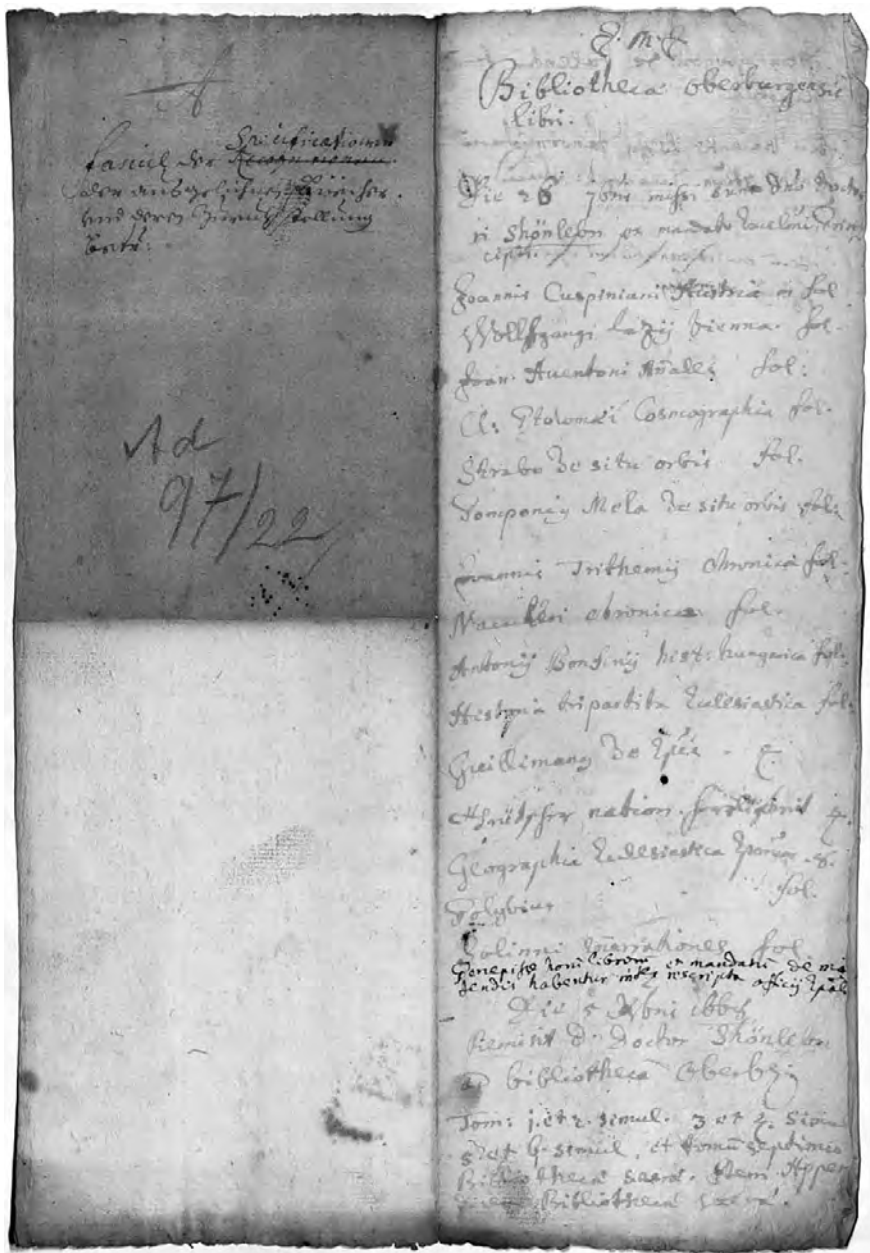 Fascicl der Specificationen
oder ausgelichnen Büecher
und deren Zuruckstellung
betr:
Ad
97/22
Bibliotheca Oberburgensis
libri.
Die 26 7bris missi sunt Dno Docto
ri Shönleben ex mandato Prin
cipis
Joannis Cuspiniani Austria in fol
Wolffgangi Lazij Vienna. fol.
Joan: Auentini Añales fol:
Cl: Ptolomæi Cosmographia fol.
Strabo de situ orbis fol.
Pomponij Mela de situ orbis fol:
Joannis Trithemij Chronica fol.
Naucleri chronica fol.
Antonij Bonfinij hist: hungarica fol.
Historia tripartita Ecclesiastica fol.
Guillimang de
nation.
Geographia Ecclesiastica
Polybius fol.
Solinni Enarrationes fol
librorum et mandatis de mit
tendis habentur inter rescripta officij
Die 5
Remisit D. Doctor Shönleben
ad bibliothecã Oberbg
Tom: 1. et 2. simul. 3 et 4. simul
5 et 6. simul, et tomũ septimũ
Bibliothecæ sacræ. Item Appen
Bibliothecæ sacræ.